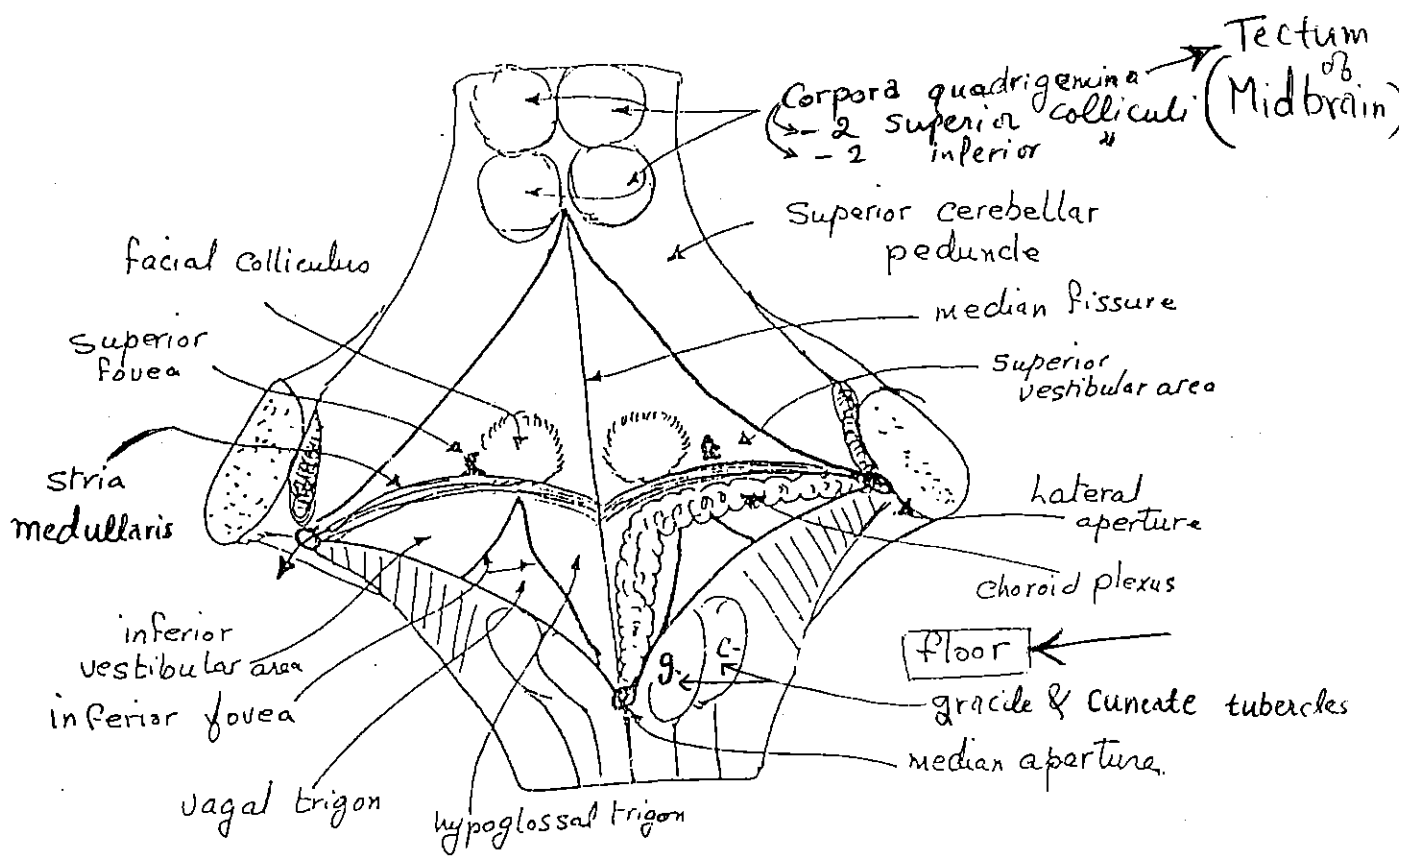 Tectum
of
(Midbrain)
Corpora quadrigemina
- 2 superior colliculi
- 2 inferior "
Superior cerebellar
peduncle
facial colliculus
median fissure
Superior
fovea
Superior
vestibular area
Stria
medullaris
Lateral
aperture
Choroid plexus
inferior
vestibular area
floor
g.
c.
inferior fovea
gracile & Cuneate tubercles
median aperture.
vagal trigon
hypoglossal trigon